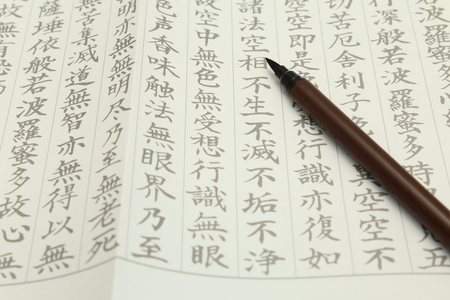 若波羅蜜
行深般若波羅蜜多時五
切苦厄舎利子異空空不
空空即是想行識亦復如
諸法空相不生不滅不垢不浄
故空中無色無受想行識無眼
色声香味触法無眼界乃至
無明亦無無明尽乃至無老死
無苦集滅道無智亦無得以無
薩埵依般若波羅蜜多故心無
故無有恐